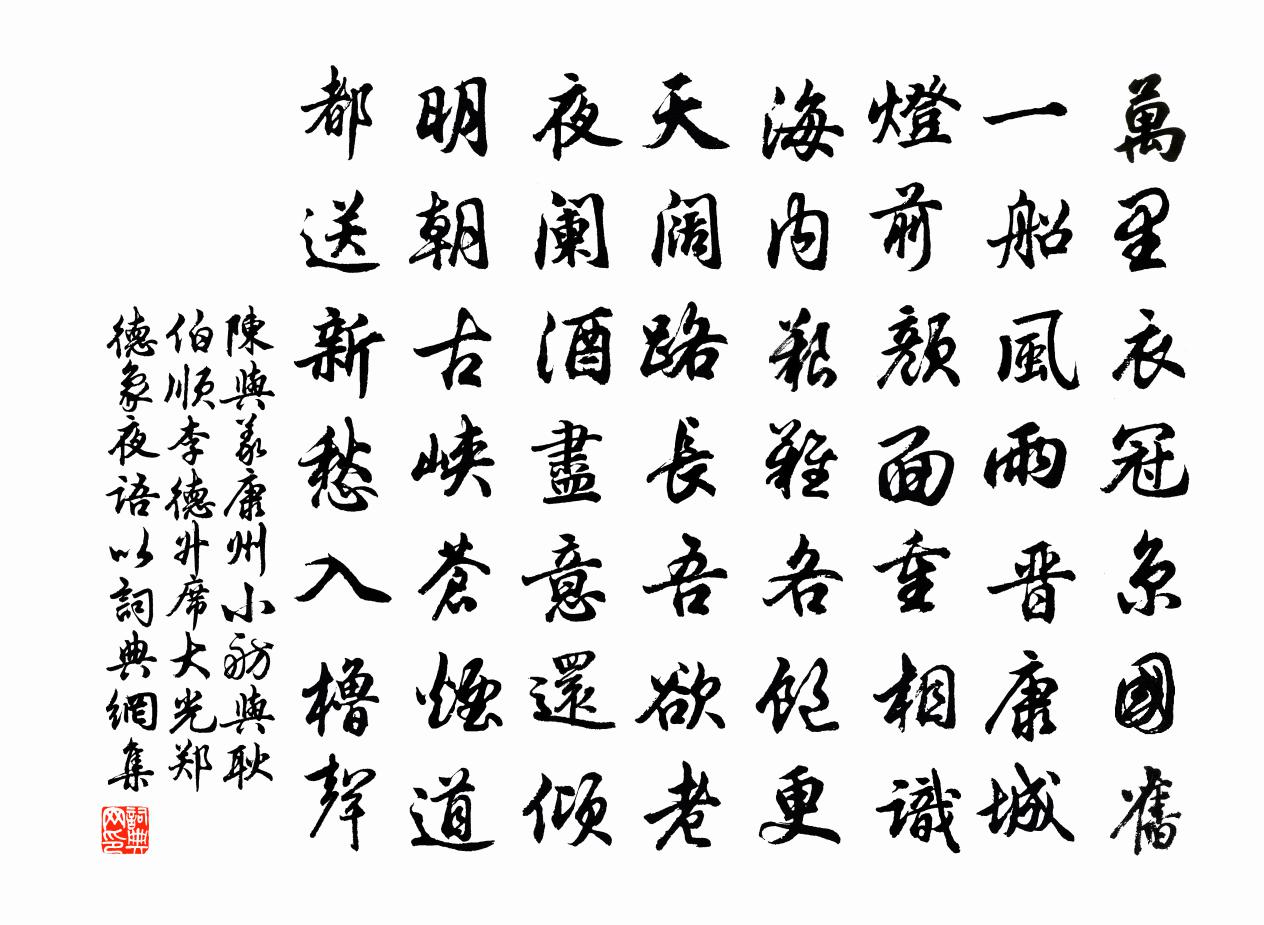 萬里衣冠京國舊
一船風雨晋康城
燈前顔面重相識
海内艱難各飽更
天闊路長吾欲老
夜闌酒盡意還傾
明朝古峽蒼煙道
都送新愁入櫓聲
陳與義康州小舫與耿
伯順李德升席大光郑
德象夜語以詞典網集
詞典
网印